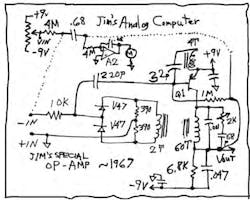 +9V
Jim's Analog Computer
4M
.68
VIN
-9V
A2
220P
32P
9T
+9V
Q1
1M
10K
V47
390
V47
390
2P
60T
2K
.68
-IN
+IN
VOUT
JIM'S SPECIAL
OP-AMP ~1967
6.8K
-9V
.047